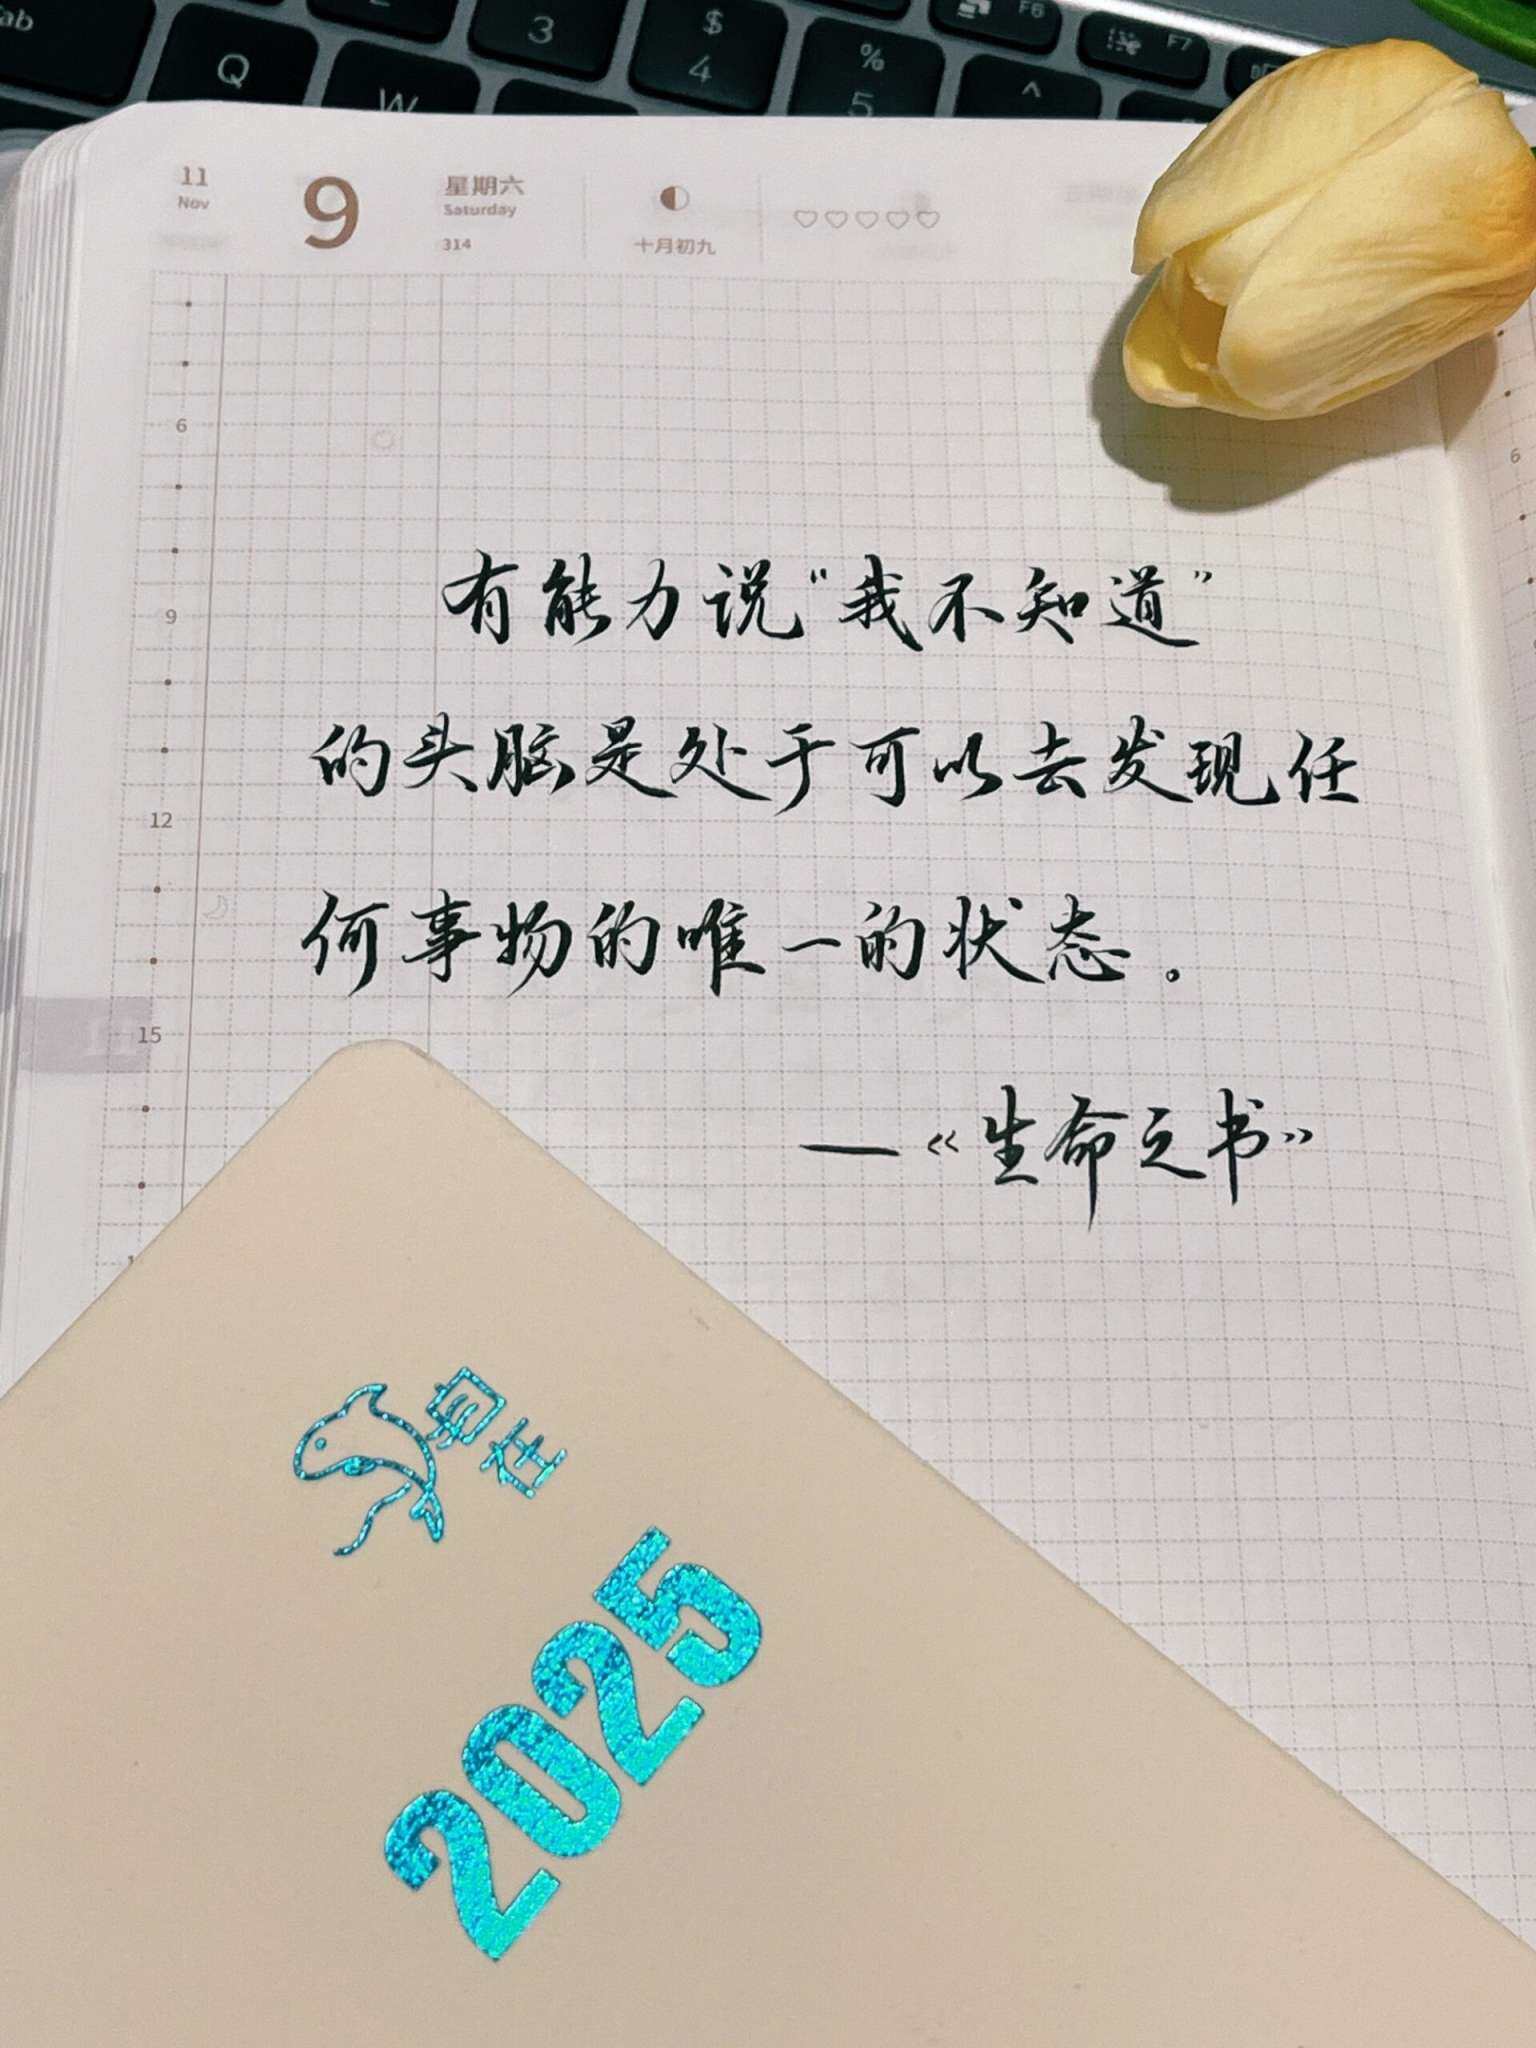 Tab
Q
W
2
3
$
4
%
5
^
F6
F7
11
Nov
9
星期六
Saturday
314
十月初九
6
6
有能力说“我不知道”
9
的头脑是处于可以去发现任
12
何事物的唯一的状态。
15
11
—《生命之书》
自在
2025